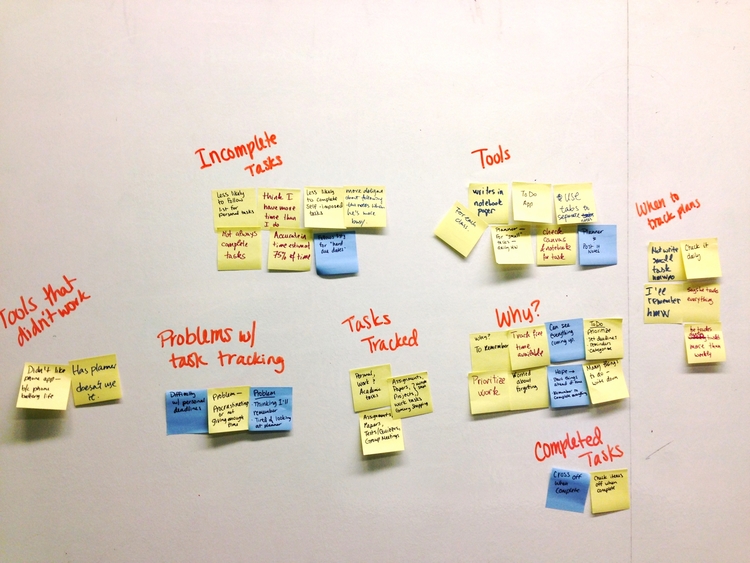 Incomplete
Tasks
Less likely
to follow
list for
personal tasks
think I
have more
time than
I do
Less likely
to complete
self-imposed
tasks
more diligent
about following
when
he's more
busy.
Not always
complete
tasks
Accurate in
time estimate
75% of time
for "hard
due dates"
Tools
writes in
notebook
paper
To Do
App
USE
tabs to
separate
For each
class
Planner
for
check
canvas
& notebook
for task
Planner
&
Post it
notes
When to
track plans
Not write
small
task
Check it
daily
I'll
remember
HMW
everything
more than
weekly
Tools that
didn't work
Didn't like
phone app—
phone
battery life
Has planner
doesn't use
it.
Problems w/
task tracking
Difficulty
w/ personal
deadlines
Problem—
Procrastination
not
giving enough
time
Problem
Thinking I'll
remember
Tired of looking
at planner
Tasks
Tracked
Personal,
Work &
Academic
tasks
Assignments,
Papers,
Projects,
work tasks
Grocery Shopping
Assignments,
Papers,
Tests/Quizzes,
Group Meetings
Why?
Why?
To Remember
Track free
time available
Can see
everything
coming up.
To Do
prioritize
set deadlines
reminders
categorize
Prioritize
work
Worried
about
forgetting
Hope—
things
ahead of time
Remember to
complete everything
Many things
to do—
write down
Completed
Tasks
Cross off
when
complete
Check items
off when
complete